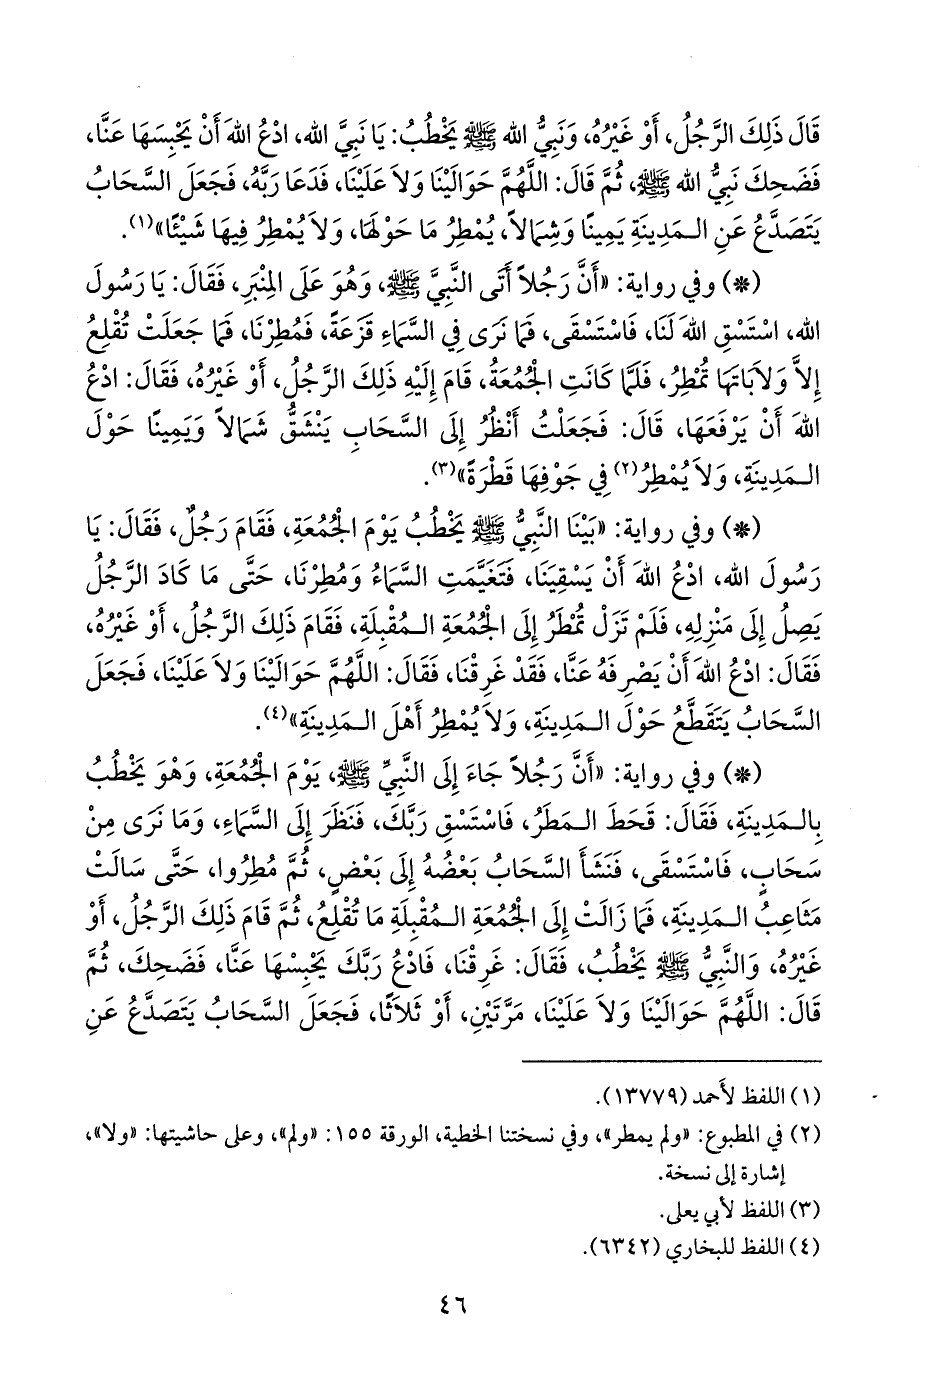 قَالَ ذَلِكَ الرَّجُلُ، أَوْ غَيْرُهُ، وَنَبِيُّ الله ﷺ يَخْطُبُ: يَا نَبِيَّ الله، ادْعُ اللهَ أَنْ يَحْبِسَهَا عَنَّا،
فَضَحِكَ نَبِيُّ الله ﷺ، ثُمَّ قَالَ: اللَّهُمَّ حَوَالَيْنَا وَلاَ عَلَيْنَا، فَدَعَا رَبَّهُ، فَجَعَلَ السَّحَابُ
يَتَصَدَّعُ عَنِ الـمَدِينَةِ يَمِينًا وَشِمَالاً، يُمْطِرُ مَا حَوْلَهَا، وَلاَ يُمْطِرُ فِيهَا شَيْئًا»(١).
(*) وفي رواية: «أَنَّ رَجُلاً أَتَى النَّبِيَّ ﷺ، وَهُوَ عَلَى المِنْبَرِ، فَقَالَ: يَا رَسُولَ
الله، اسْتَسْقِ اللهَ لَنَا، فَاسْتَسْقَى، فَمَا نَرَى فِي السَّمَاءِ قَزَعَةً، فَمُطِرْنَا، فَمَا جَعَلَتْ تُقْلِعُ
إِلاَّ وَلاَبَاتَهَا تُمْطِرُ، فَلَمَّا كَانَتِ الجُمُعَةُ، قَامَ إِلَيْهِ ذَلِكَ الرَّجُلُ، أَوْ غَيْرُهُ، فَقَالَ: ادْعُ
اللهَ أَنْ يَرْفَعَهَا، قَالَ: فَجَعَلْتُ أَنْظُرُ إِلَى السَّحَابِ يَنْشَقُّ شَمَالاً وَيَمِينًا حَوْلَ
الـمَدِينَةِ، وَلاَ يُمْطِرُ(٢) فِي جَوْفِهَا قَطْرَةً»(٣).
(*) وفي رواية: «بَيْنَا النَّبِيُّ ﷺ يَخْطُبُ يَوْمَ الجُمُعَةِ، فَقَامَ رَجُلٌ، فَقَالَ: يَا
رَسُولَ الله، ادْعُ اللهَ أَنْ يَسْقِيَنَا، فَتَغَيَّمَتِ السَّمَاءُ وَمُطِرْنَا، حَتَّى مَا كَادَ الرَّجُلُ
يَصِلُ إِلَى مَنْزِلِهِ، فَلَمْ تَزَلْ تُمْطَرُ إِلَى الجُمُعَةِ الـمُقْبِلَةِ، فَقَامَ ذَلِكَ الرَّجُلُ، أَوْ غَيْرُهُ،
فَقَالَ: ادْعُ اللهَ أَنْ يَصْرِفَهُ عَنَّا، فَقَدْ غَرِقْنَا، فَقَالَ: اللَّهُمَّ حَوَالَيْنَا وَلاَ عَلَيْنَا، فَجَعَلَ
السَّحَابُ يَتَقَطَّعُ حَوْلَ الـمَدِينَةِ، وَلاَ يُمْطِرُ أَهْلَ الـمَدِينَةِ»(٤).
(*) وفي رواية: «أَنَّ رَجُلاً جَاءَ إِلَى النَّبِيِّ ﷺ، يَوْمَ الجُمُعَةِ، وَهْوَ يَخْطُبُ
بِالـمَدِينَةِ، فَقَالَ: قَحَطَ الـمَطَرُ، فَاسْتَسْقِ رَبَّكَ، فَنَظَرَ إِلَى السَّمَاءِ، وَمَا نَرَى مِنْ
سَحَابٍ، فَاسْتَسْقَى، فَنَشَأَ السَّحَابُ بَعْضُهُ إِلَى بَعْضٍ، ثُمَّ مُطِرُوا، حَتَّى سَالَتْ
مَثَاعِبُ الـمَدِينَةِ، فَمَا زَالَتْ إِلَى الجُمُعَةِ الـمُقْبِلَةِ مَا تُقْلِعُ، ثُمَّ قَامَ ذَلِكَ الرَّجُلُ، أَوْ
غَيْرُهُ، وَالنَّبِيُّ ﷺ يَخْطُبُ، فَقَالَ: غَرِقْنَا، فَادْعُ رَبَّكَ يَحْبِسْهَا عَنَّا، فَضَحِكَ، ثُمَّ
قَالَ: اللَّهُمَّ حَوَالَيْنَا وَلاَ عَلَيْنَا، مَرَّتَيْنِ، أَوْ ثَلاَثًا، فَجَعَلَ السَّحَابُ يَتَصَدَّعُ عَنِ
(١) اللفظ لأَحمد (١٣٧٧٩).
(٢) في المطبوع: «ولم يمطر»، وفي نسختنا الخطية، الورقة ١٥٥: «ولم»، وعلى حاشيتها: «ولا»،
إشارة إلى نسخة.
(٣) اللفظ لأبي يعلى.
(٤) اللفظ للبخاري (٦٣٤٢).
٤٦